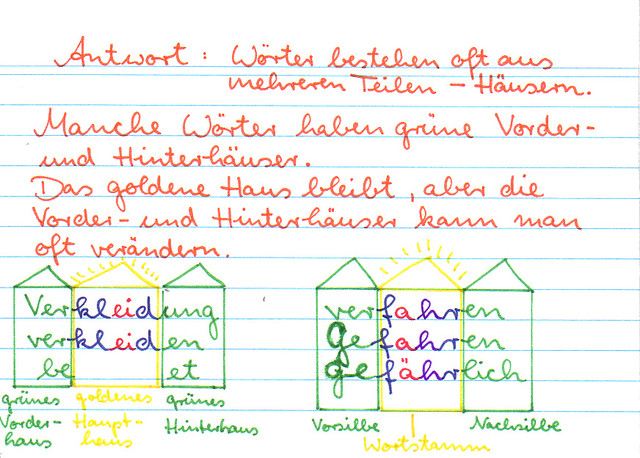 Antwort: Wörter bestehen oft aus
mehreren Teilen – Häusern.
Manche Wörter haben grüne Vorder-
und Hinterhäuser.
Das goldene Haus bleibt, aber die
Vorder- und Hinterhäuser kann man
oft verändern.
Verkleidung
verkleiden
be et
grünes
Vorder-
haus
goldenes
Haupt-
haus
grünes
Hinterhaus
verfahren
Gefahren
gefährlich
Vorsilbe
Wortstamm
Nachsilbe